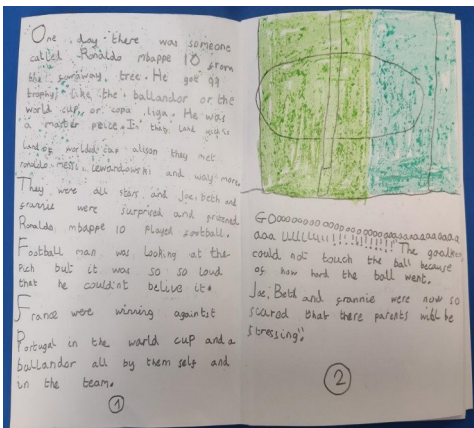 One day there was someone
called Ronaldo mbappe 10 from
the faraway tree. He got 99
trophy, like the ballandor or the
world cup or copa liga. He was
a master peice. In they land
land of worlded cup alison they met
ronaldo messi, lewandowski and way more.
They were all stars and Joe, beth and
frannie were surprised and
Ronaldo mbappe 10 played football.
Football man was looking at the
Pich but it was so so loud
that he couldn't belive it.
France were winning againtst
Portugal in the world cup and a
ballandor all by them self and
in the team.
1
GOooooooooooooooooooooooo
aaa LLLLLLuu!!!!!!!!!!!!! "The goalkeeper
could not touch the ball because
of how hard the ball went.
Joe, Beth and frannie were now so
scared that there parents will be
stressing".
2